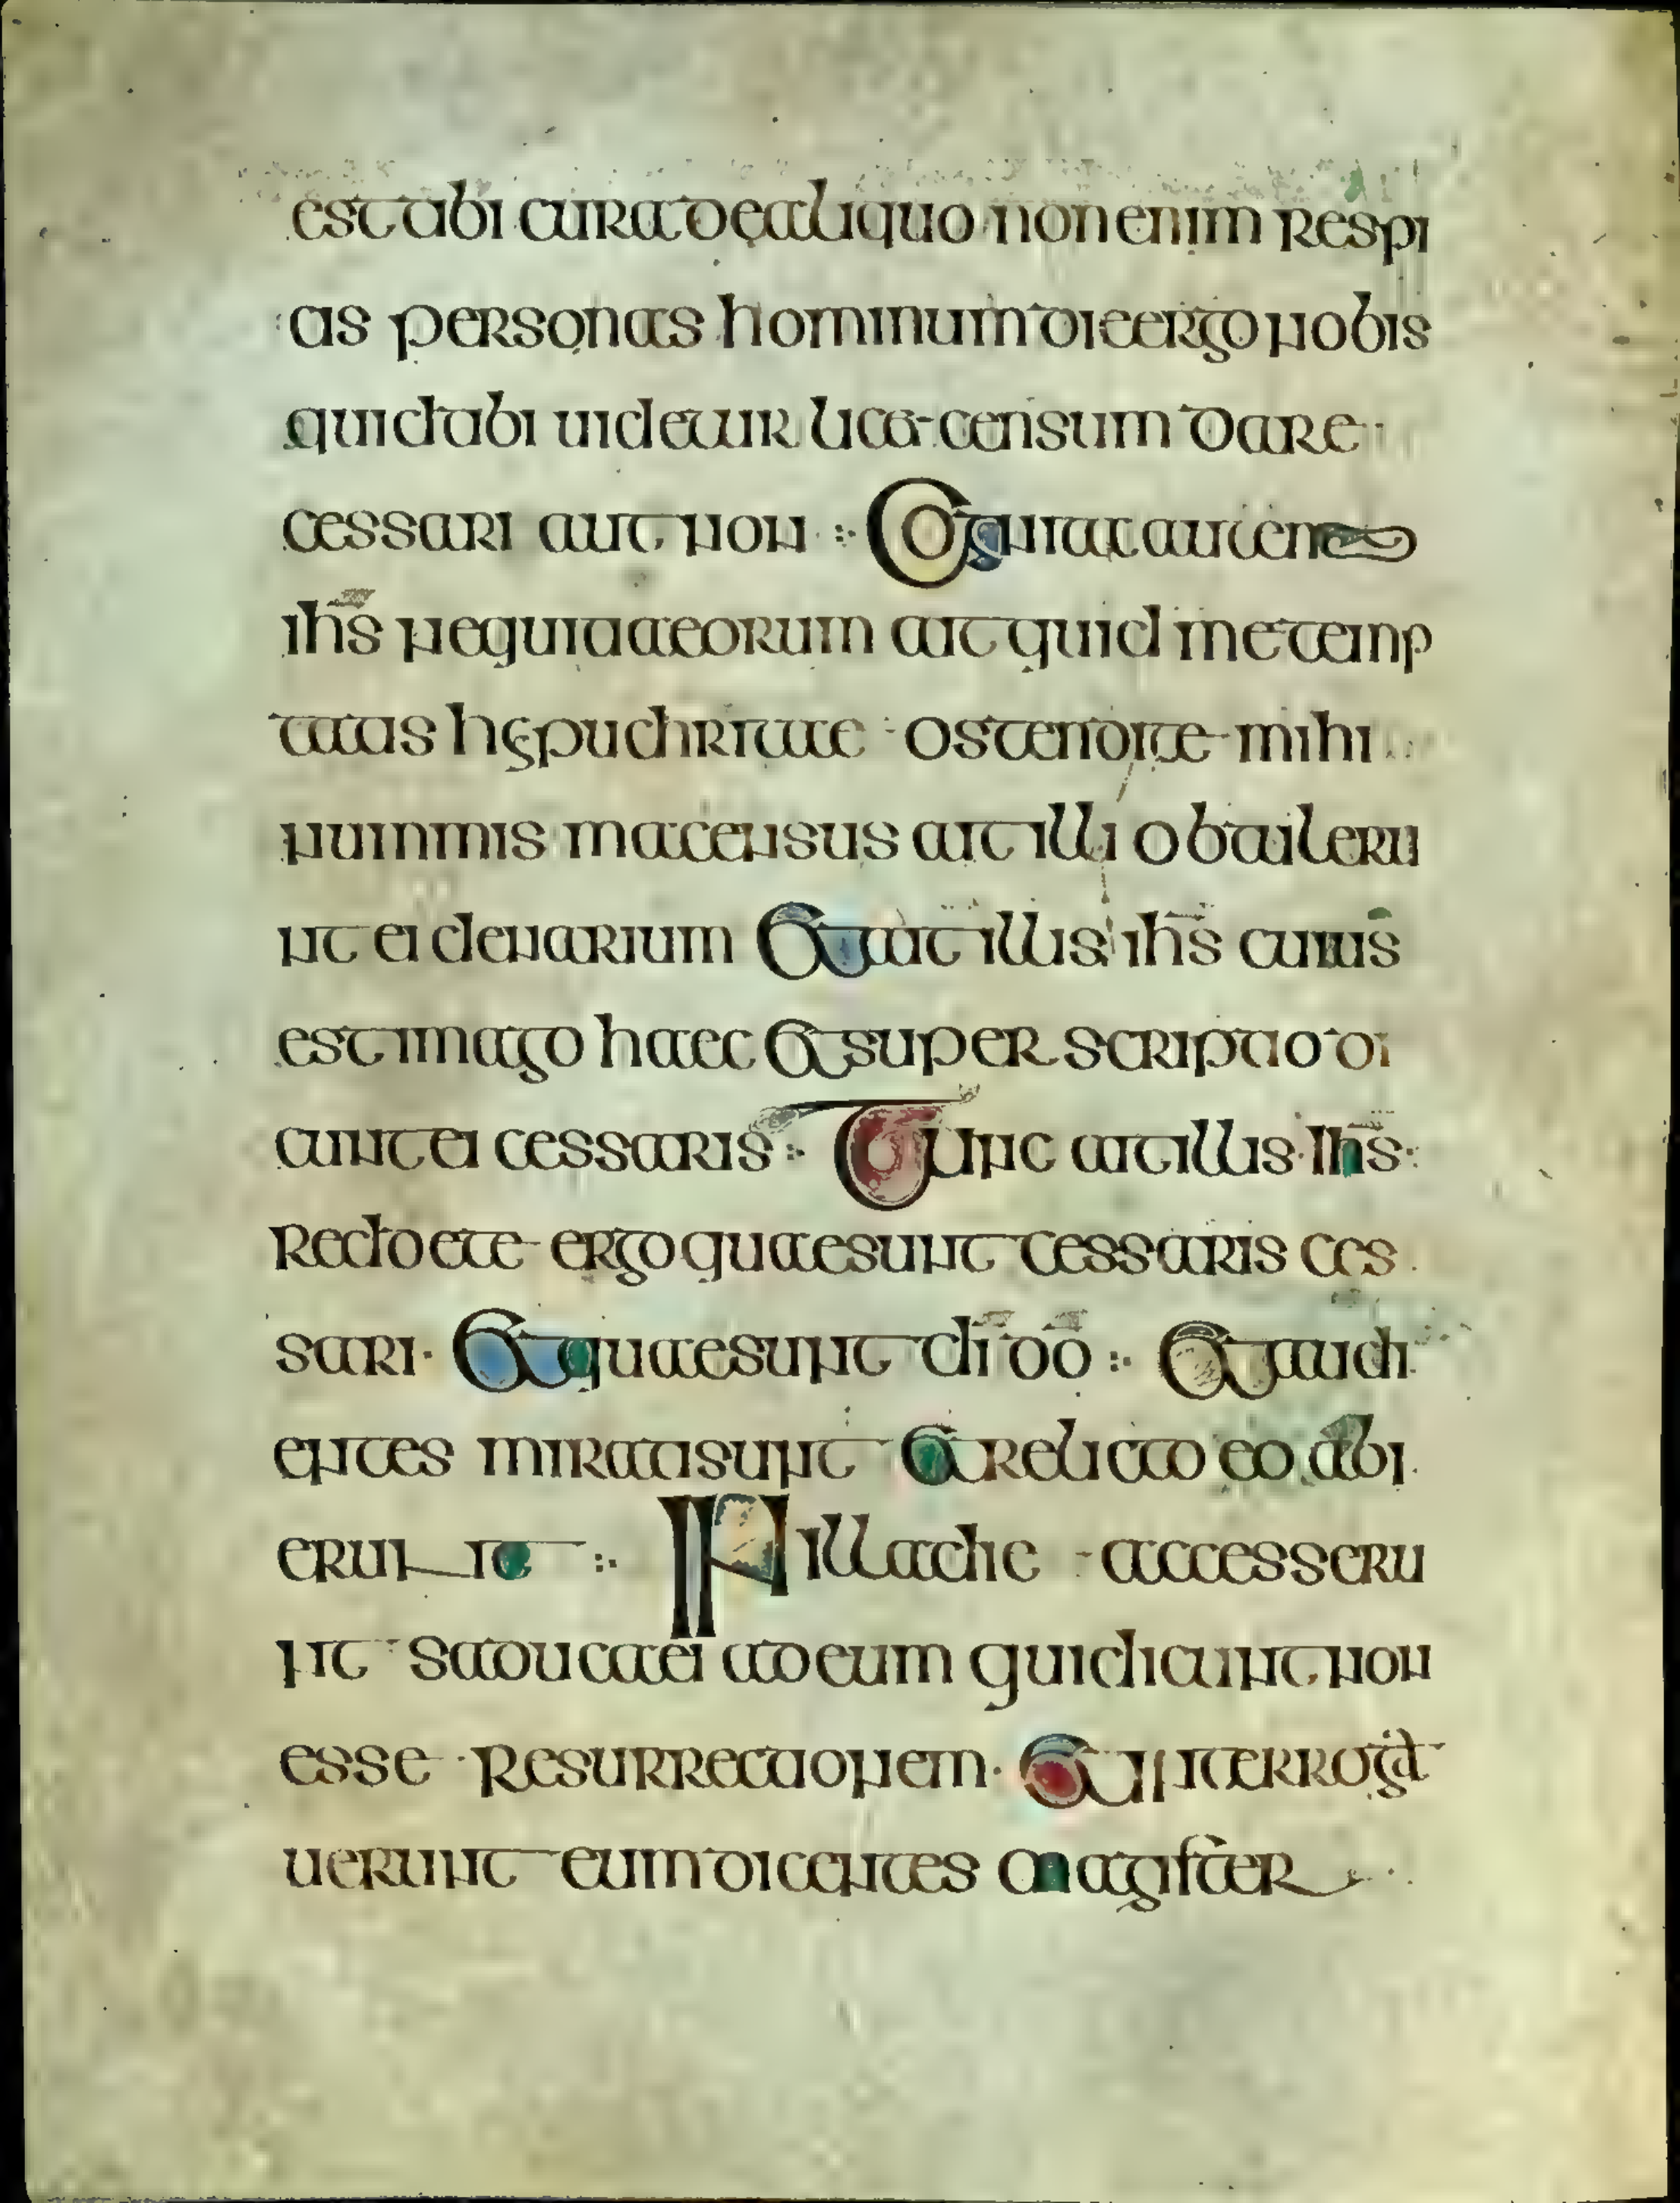 est tibi cura de aliquo non enim respi
cis personas hominum dic ergo nobis
quid tibi uidetur licet censum dare
cessari aut non Cognita autem
ihs nequitia eorum ait quid me temp
tatis hypuchritae ostendite mihi
nummismacensus at illi obtulleru
nt ei denarium Et ait illis ihs cuius
est imago haec et super scriptio di
cunt ei cessaris Tunc ait illis ihs
Reddete ergo quae sunt cessaris ces
sari Et quae sunt di do Et audi
entes mirati sunt et relicto eo abi
erunt In illa die accesseru
nt saducaei ad eum qui dicunt non
esse resurrectionem Et interroga
uerunt eum dicentes magister